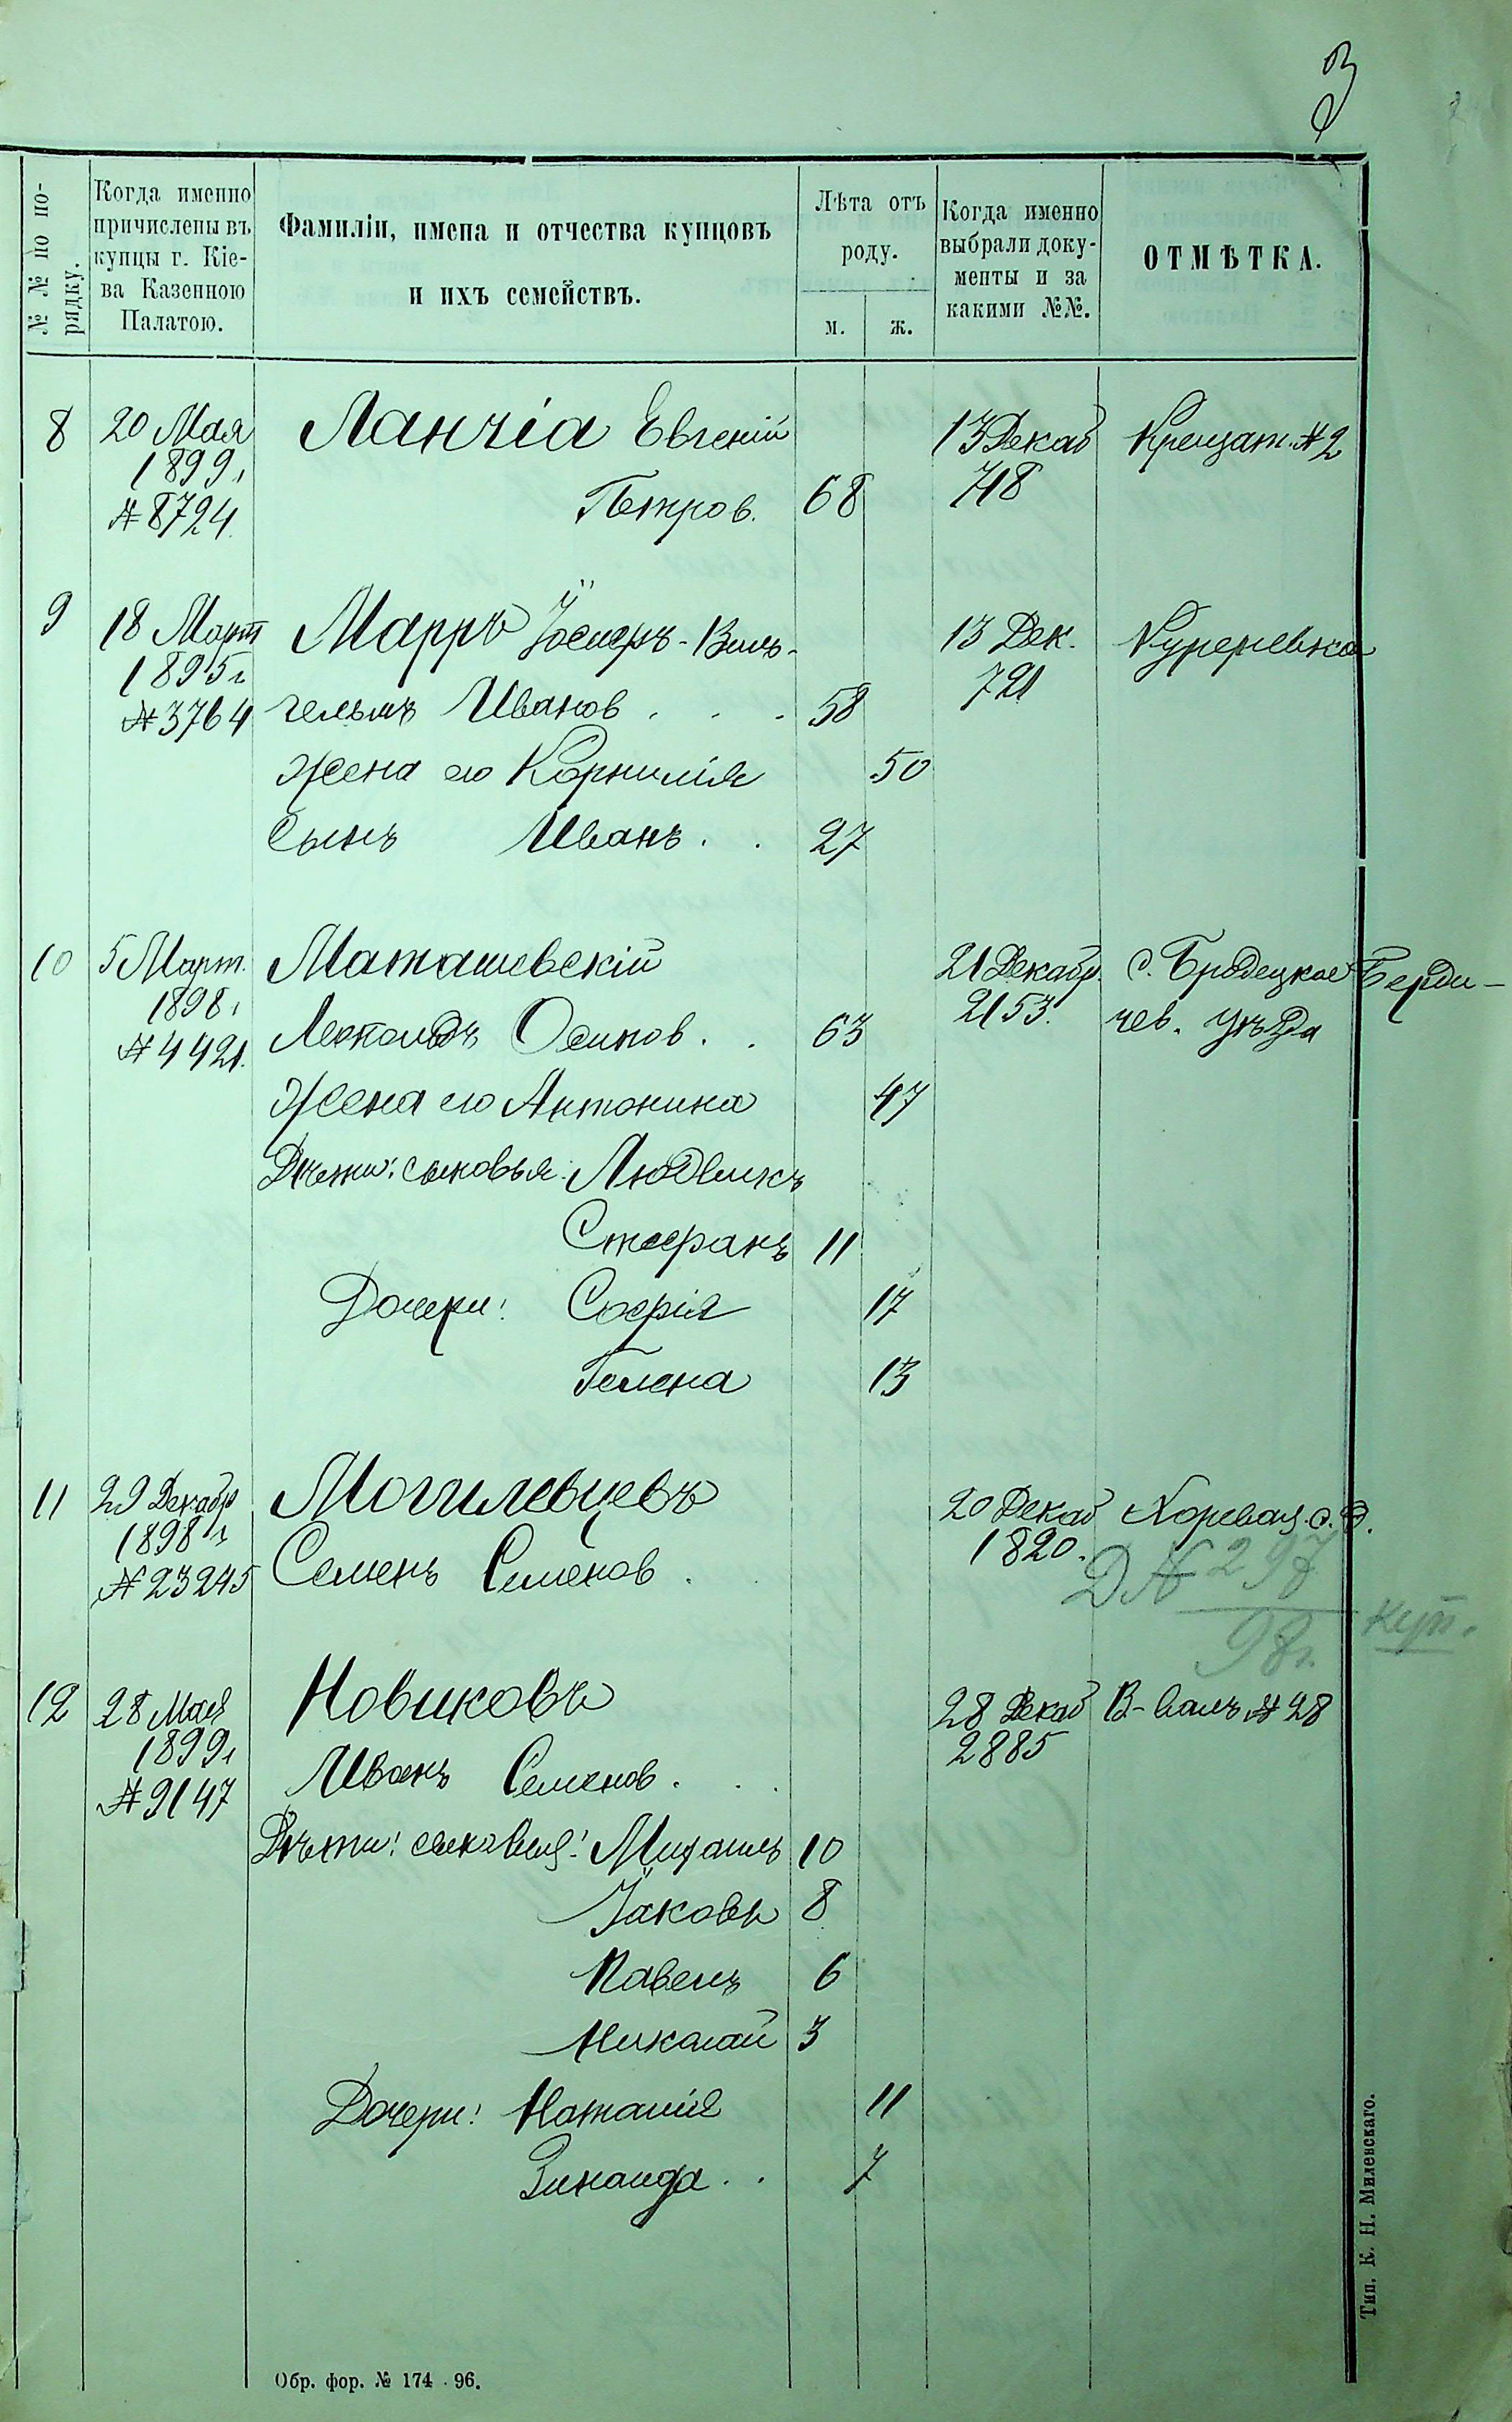 3
№ № по по-
рядку.
Когда именно
причислены въ
купцы г. Кіе-
ва Казенною
Палатою.
Фамиліи, имена и отчества купцовъ
и ихъ семействъ.
Лѣта отъ
роду.
м.
ж.
Когда именно
выбрали доку-
менты и за
какими №№.
ОТМѢТКА.
8 20 Мая Ланчіа Евгеній 13 Декаб Крещат. № 2
1899 г 718
№ 8724 Петров. 68
9 18 Март Марръ Іосифъ-Виль- 13 Дек. Куреневка
1895 г 721
№ 3764 гельмъ Иванов . . . 58
Жена его Корнилія 50
Сынъ Иванъ . . 27
10 5 Март. Маташевскій 21 Декабр. с. Бродецкое Берди-
1898 г 2153. чев. уѣзда
№ 4421. Леопольдъ Осипов . . 63
Жена его Антонина 47
Дѣти: сыновья: Людвикъ
Стефанъ 11
Дочери: Софія 17
Гелена 13
11 29 Декабр Могилевцевъ 20 Декаб Хоревая с. д.
1898 г 1820.
№ 23245 Семенъ Семенов .
Д № 297
98 г. куп.
12 28 Мая Новиковъ 28 Декаб В-валъ № 28
1899 г 2885
№ 9147 Иванъ Семенов . . .
Дѣти: сыновья: Михаилъ 10
Іаковъ 8
Павелъ 6
Николай 3
Дочери: Наталія 11
Зинаида . . 7
Обр. фор. № 174 - 96.
Тип. К. Н. Милевскаго.